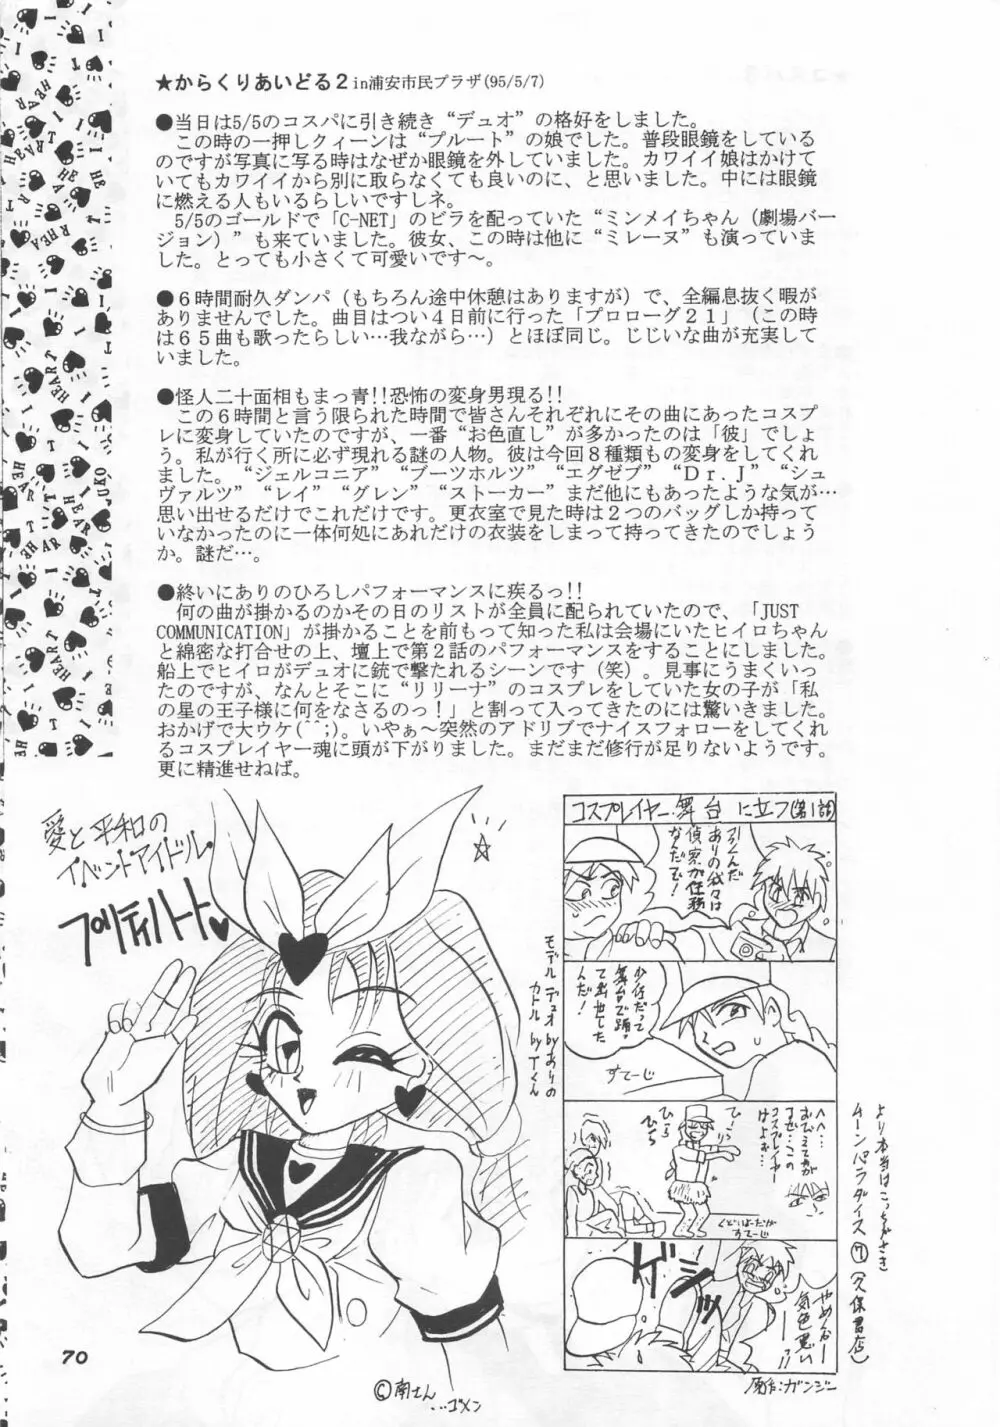 ★からくりあいどる2 in浦安市民プラザ(95/5/7)
●当日は5/5のコスパに引き続き“デュオ”の格好をしました。
この時の一押しクィーンは“プルート”の娘でした。普段眼鏡をしている
のですが写真に写る時はなぜか眼鏡を外していました。カワイイ娘はかけて
いてもカワイイから別に取らなくても良いのに、と思いました。中には眼鏡
に燃える人もいるらしいですしネ。
5/5のゴールドで「C-NET」のビラを配っていた“ミンメイちゃん（劇場バー
ジョン）”も来ていました。彼女、この時は他に“ミレーヌ”も演っていま
した。とっても小さくて可愛いです〜。
●６時間耐久ダンパ（もちろん途中休憩はありますが）で、全編息抜く暇が
ありませんでした。曲目はつい４日前に行った「プロローグ２１」（この時
は６５曲も歌ったらしい…我ながら…）とほぼ同じ。じじいな曲が充実して
いました。
●怪人二十面相もまっ青!!恐怖の変身男現る!!
この６時間と言う限られた時間で皆さんそれぞれにその曲にあったコスプ
レに変身していたのですが、一番“お色直し”が多かったのは「彼」でしょ
う。私が行く所に必ず現れる謎の人物。彼は今回８種類もの変身をしてくれ
ました。“ジェルコニア”“ブーツホルツ”“エグゼブ”“Ｄｒ.Ｊ”“シュ
ヴァルツ”“レイ”“グレン”“ストーカー”まだ他にもあったような気が…
思い出せるだけでこれだけです。更衣室で見た時は２つのバッグしか持って
いなかったのに一体何処にあれだけの衣装をしまって持ってきたのでしょう
か。謎だ…。
●終いにありのひろしパフォーマンスに疾るっ!!
何の曲が掛かるのかその日のリストが全員に配られていたので、「JUST
COMMUNICATION」が掛かることを前もって知った私は会場にいたヒイロちゃん
と綿密な打合せの上、壇上で第２話のパフォーマンスをすることにしました。
船上でヒイロがデュオに銃で撃たれるシーンです（笑）。見事にうまくいっ
たのですが、なんとそこに“リリーナ”のコスプレをしていた女の子が「私
の星の王子様に何をなさるのっ！」と割って入ってきたのには驚いきました。
おかげで大ウケ(^^;)。いやぁ〜突然のアドリブでナイスフォローをしてくれ
るコスプレイヤー魂に頭が下がりました。まだまだ修行が足りないようです。
更に精進せねば。
愛と平和の
イベントアイドル
プリティハート♥
モデル デュオ byありの
カトル by Tくん
コスプレイヤー舞台に立つ(第1話)
ありの我々は
偵察が任務
なんだで!
少佐だって
舞台で踊っ
て出世した
んだ!
すてーじ
ひ〜
ら
ひら
へへ…
コスプレイヤー
すてーじ
ゲ
やめろー
気色悪い
ー!!
原作:ガンジー
より本当はこっちがさき
ムーンパラダイス⑦(久保書店)
©南さん
…ゴメン
70
I
HEART
YUKO